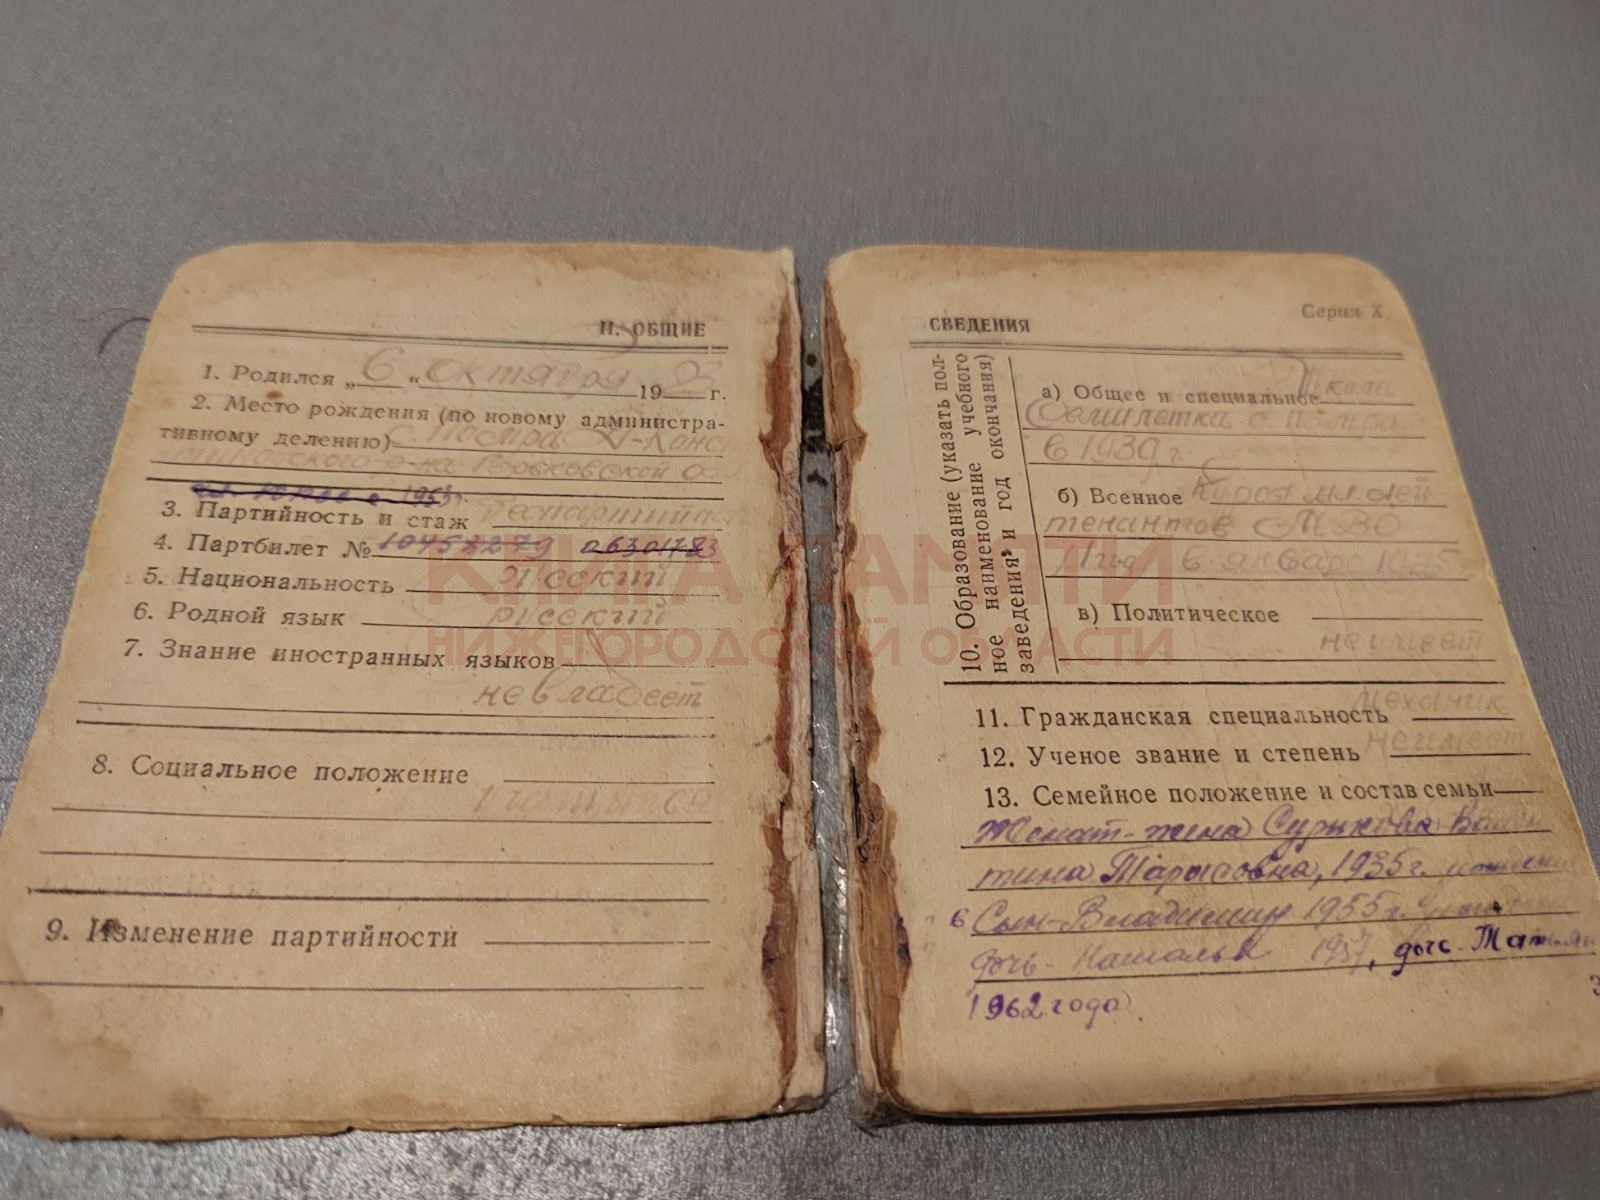 II. ОБЩИЕ
1. Родился „ 6 “ октября 19 23 г.
2. Место рождения (по новому административному делению)
3. Партийность и стаж
4. Партбилет № 10458279 06301783
5. Национальность русский
6. Родной язык русский
7. Знание иностранных языков
не владеет
8. Социальное положение
9. Изменение партийности
СВЕДЕНИЯ
Серия X
10. Образование (указать пол-
ное наименование учебного
заведения и год окончания)
а) Общее и специальное Школа
Семилетка с.
в 1939 г.
б) Военное Курсы мл. лей
тенантов МВО
1 год в январе
в) Политическое
не имеет
11. Гражданская специальность механик
12. Ученое звание и степень не имеет
13. Семейное положение и состав семьи
Женат - жена Сурикова Вален
тина Тарасовна, 1935 г.
Сын - Владимир 1955 г.
дочь - Наталья 1957, дочь - Татьяна
1962 года.
3
КНИГА ПАМЯТИ
НИЖЕГОРОДСКОЙ ОБЛАСТИ